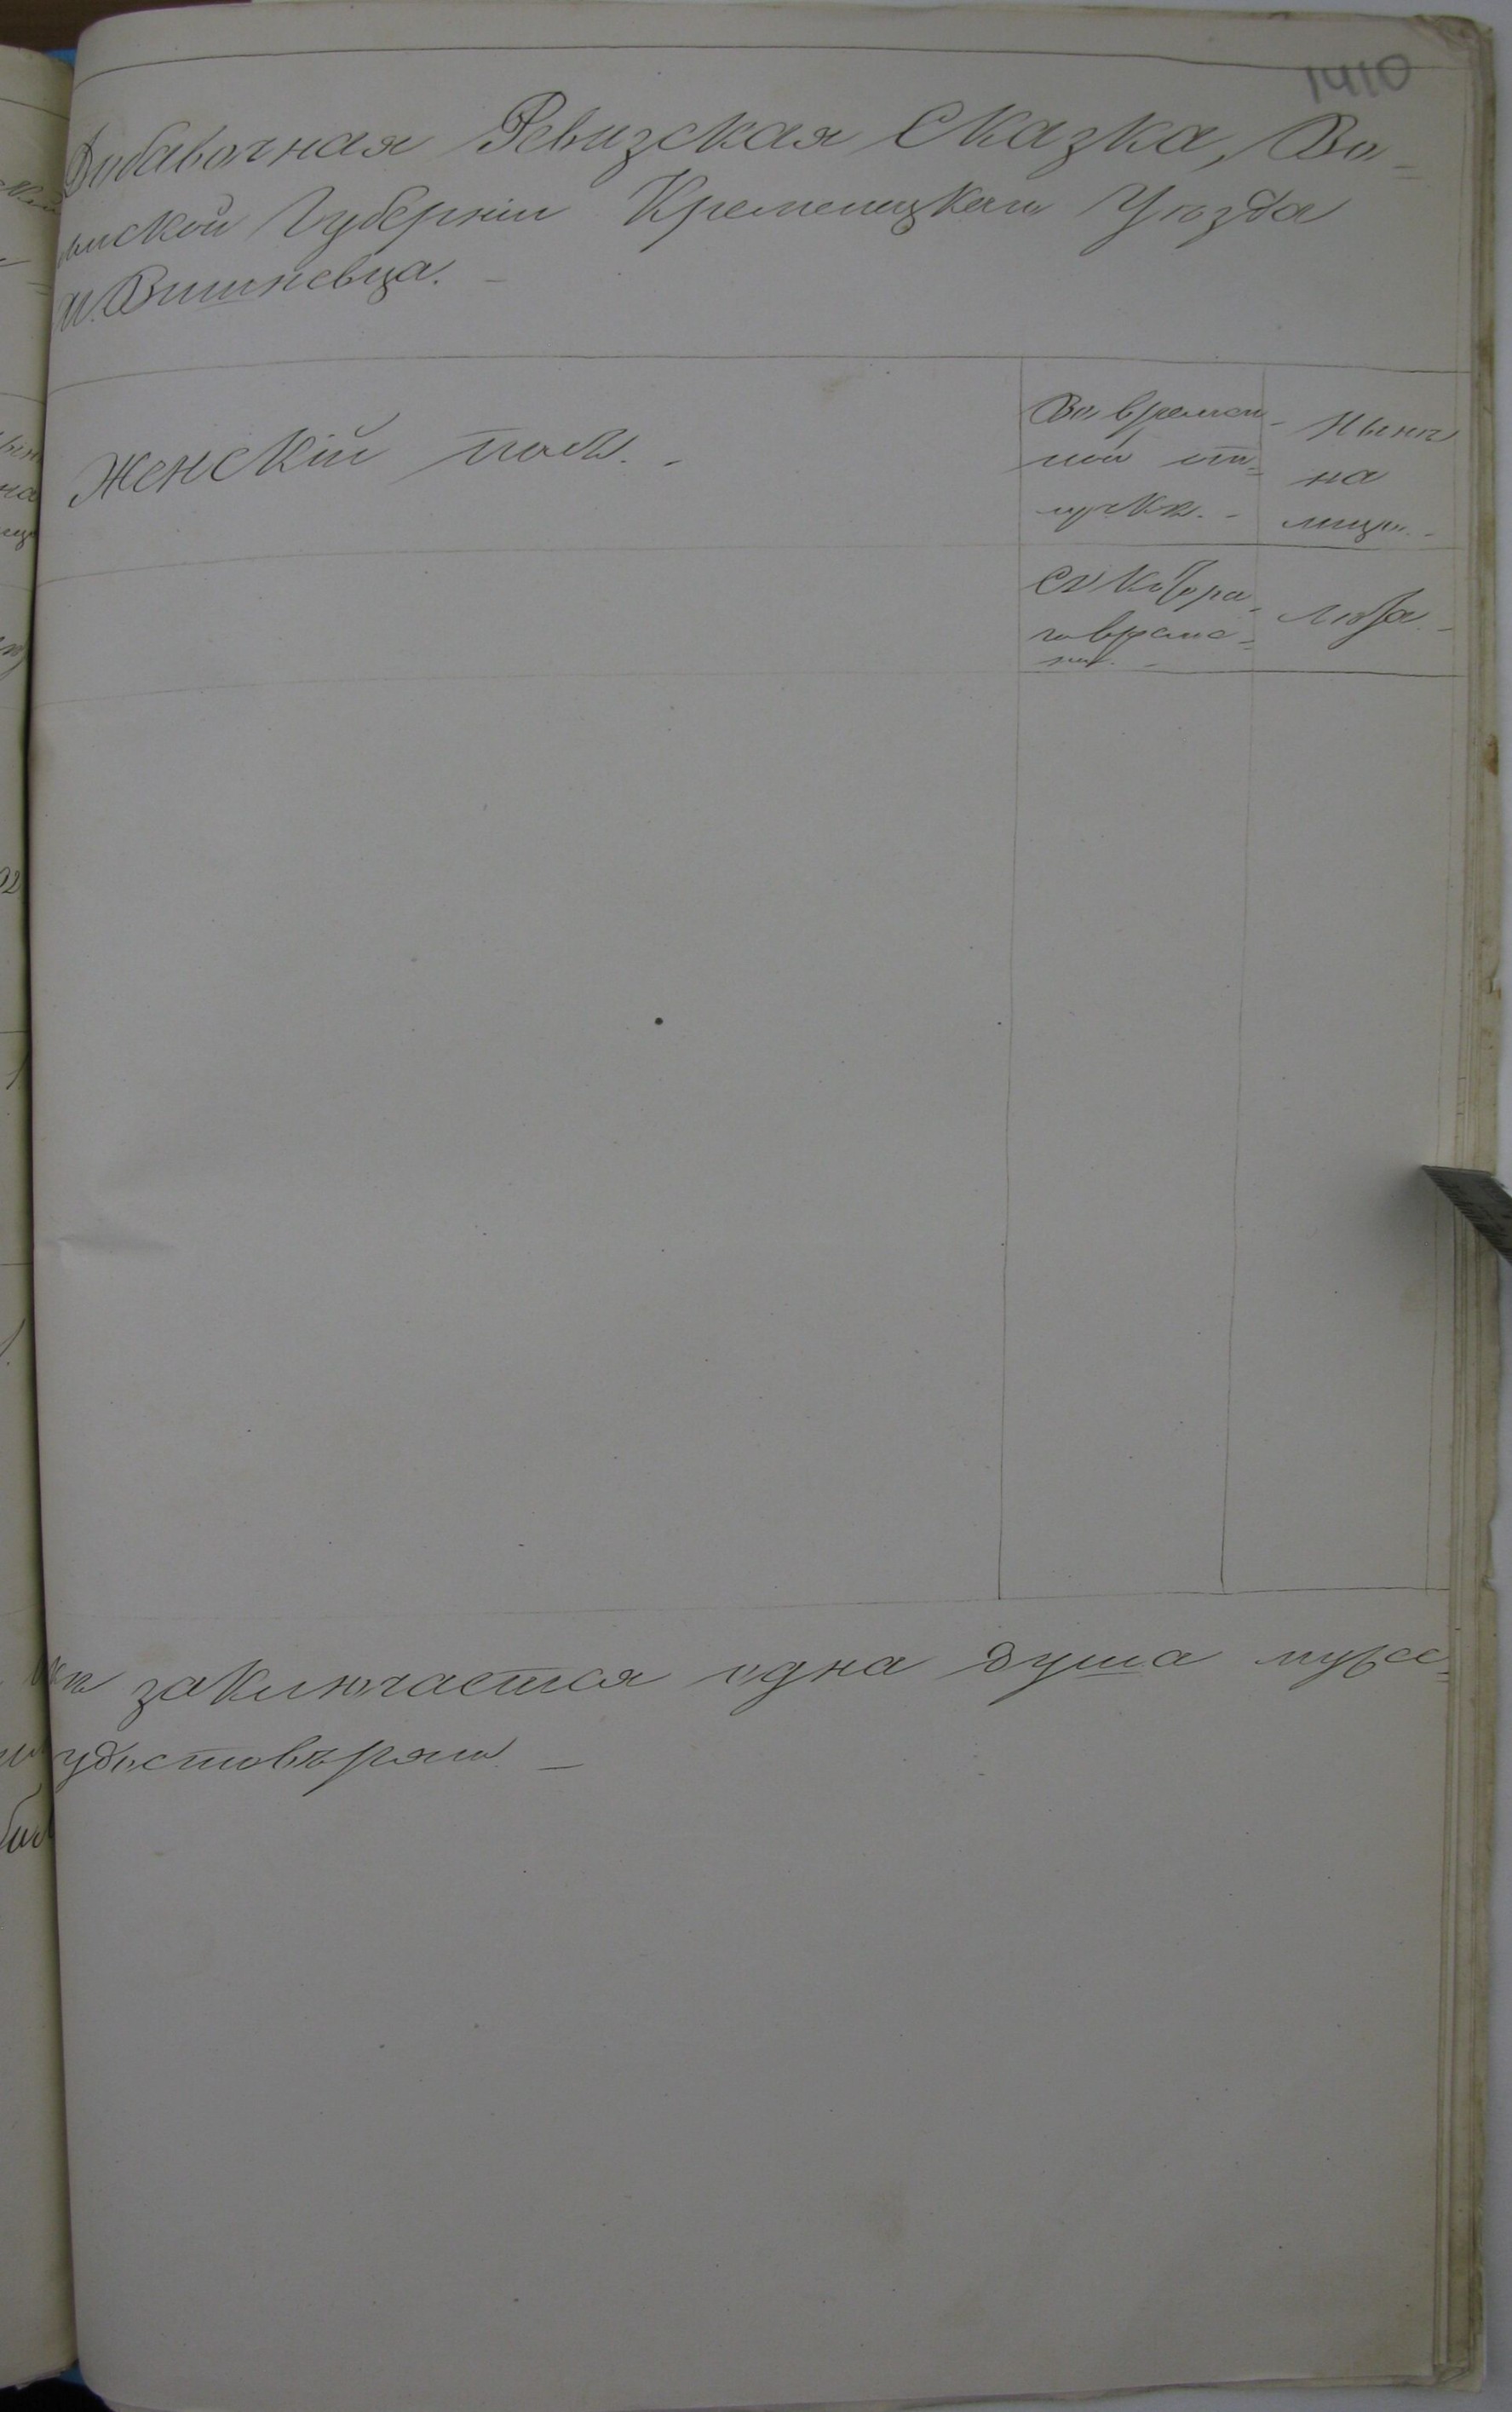 1410
Добавочная Ревизская Сказка, Во-
лынской Губерніи Кременецкаго Уѣзда
М. Вишневца. -
Женскій полъ. -
Во времен-
ной от-
лучкѣ. -
Нынѣ
на
лицо. -
Съ котора-
го време-
ни. -
Лѣта. -
заключается одна душа муже-
удостовѣряю. -